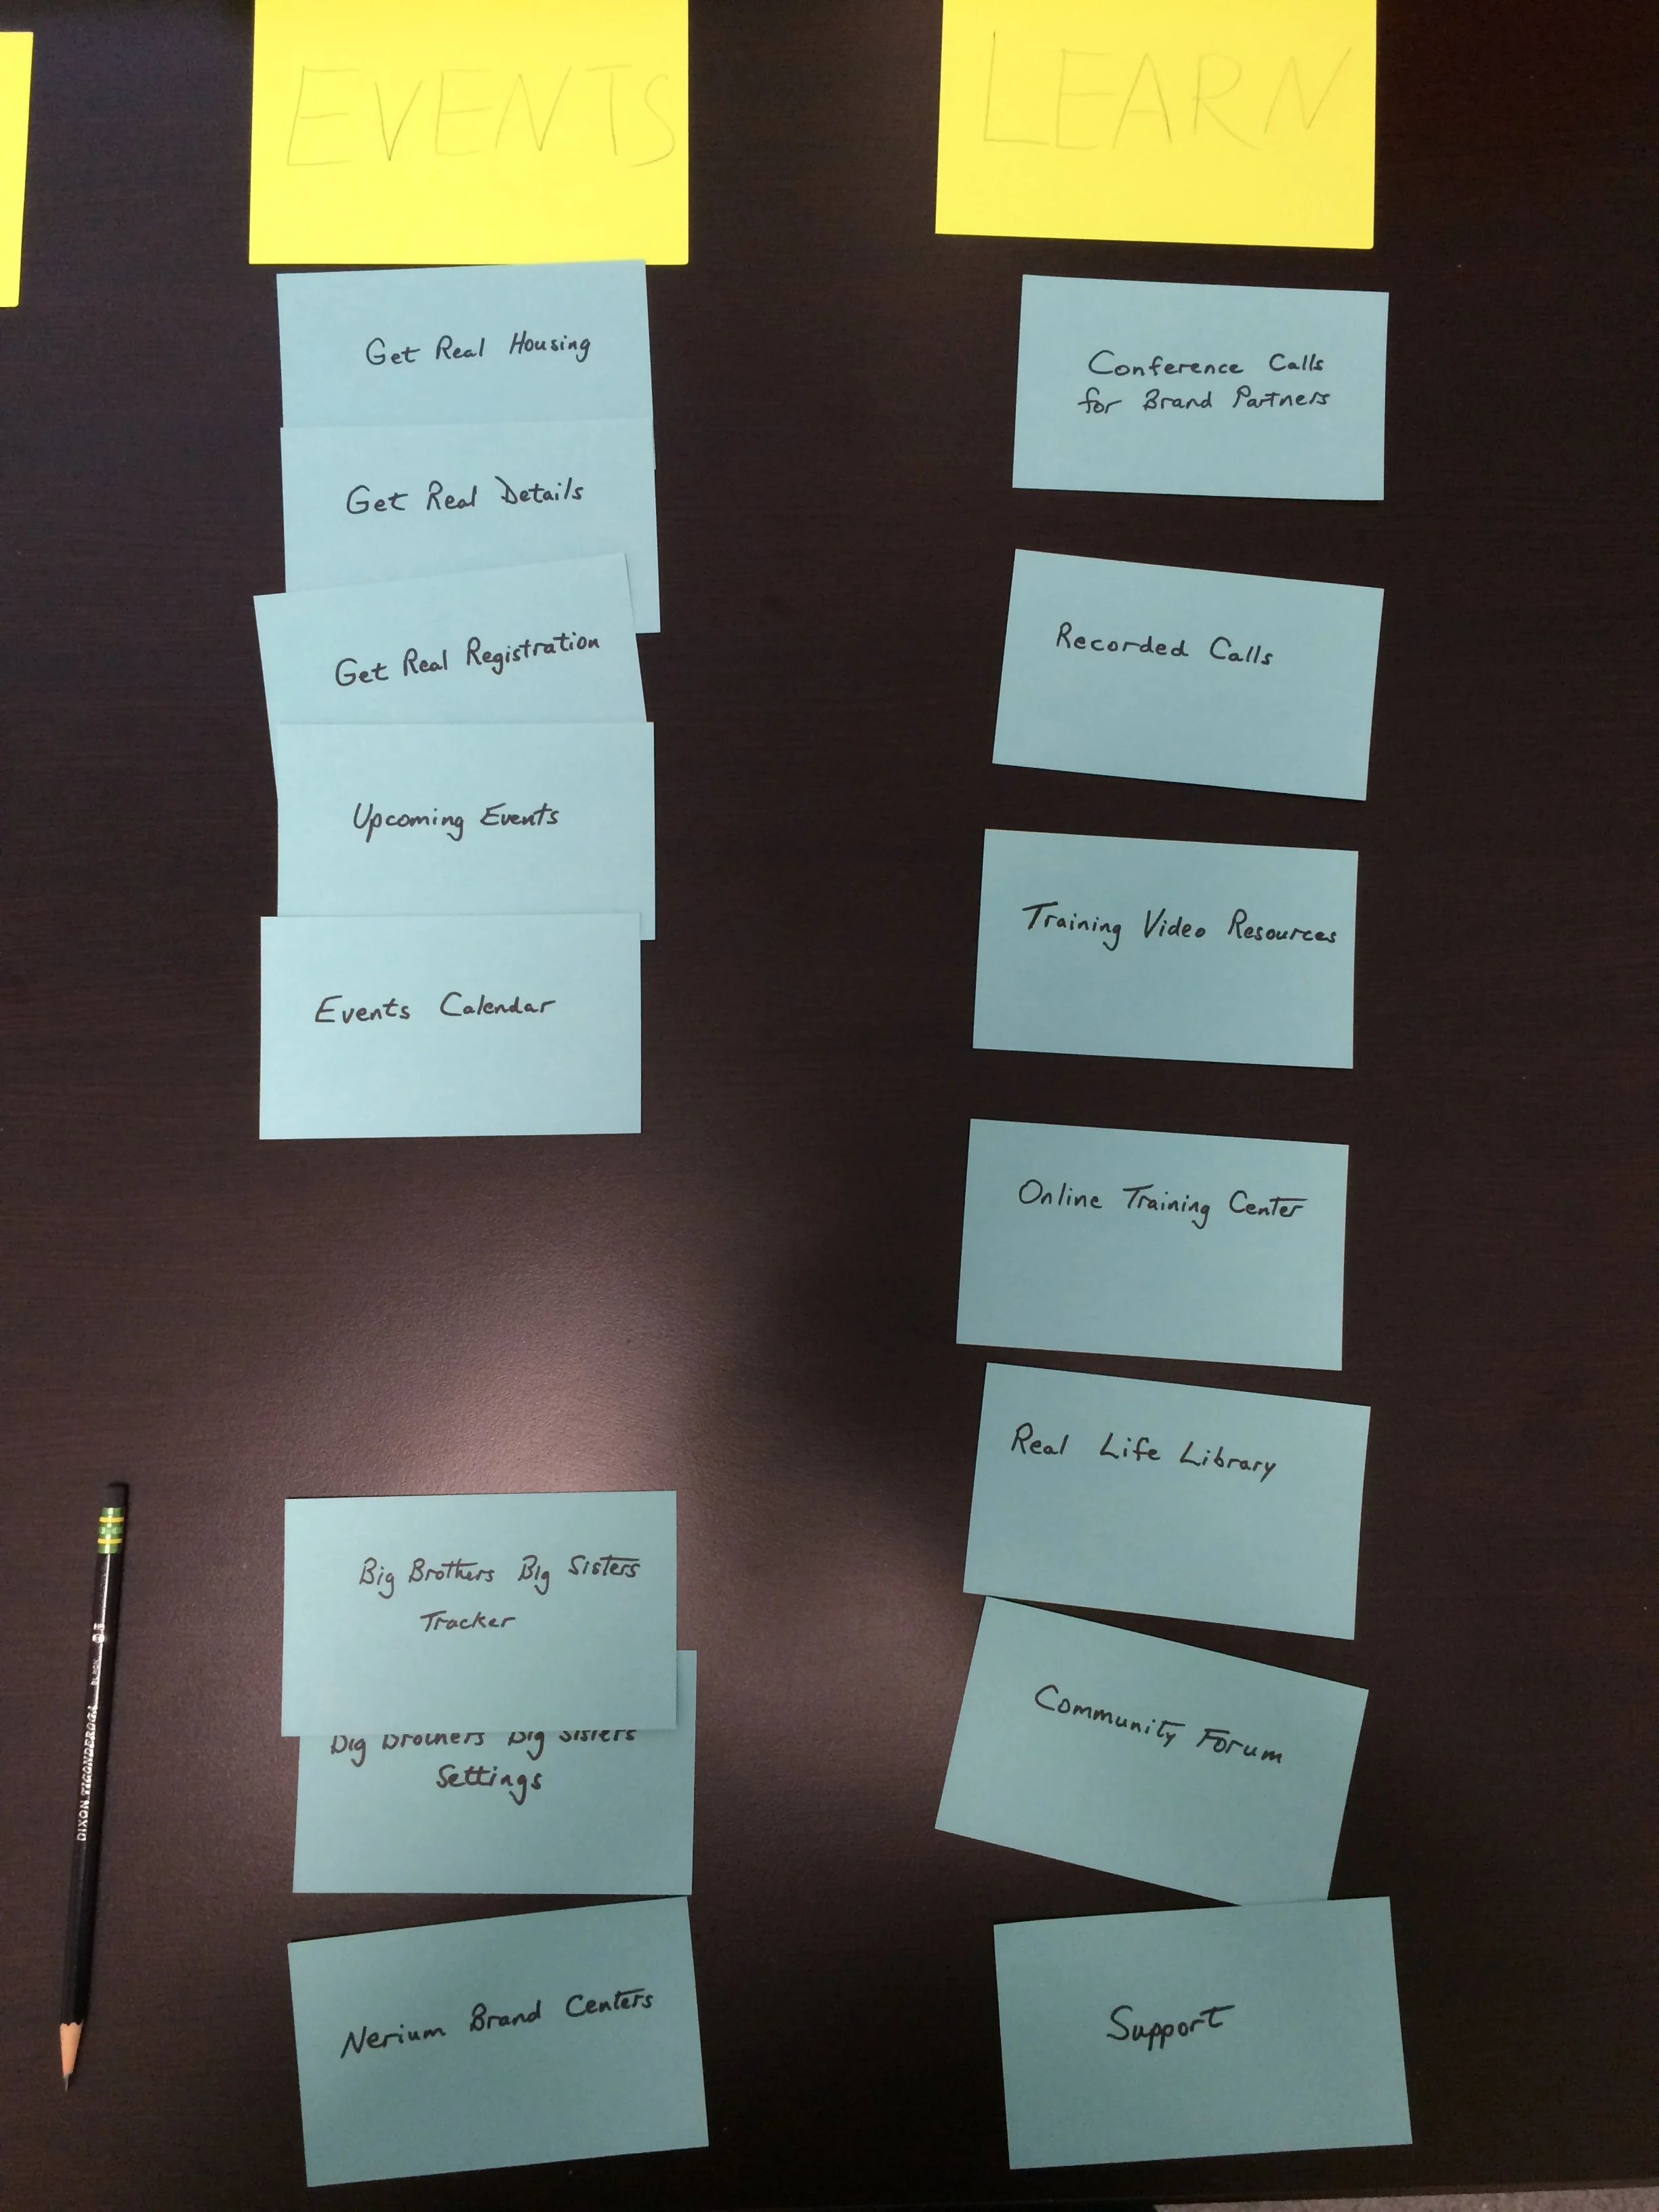 EVENTS
Get Real Housing
Get Real Details
Get Real Registration
Upcoming Events
Events Calendar
Big Brothers Big Sisters
Tracker
Big Brothers Big Sisters
Settings
Nerium Brand Centers
LEARN
Conference Calls
for Brand Partners
Recorded Calls
Training Video Resources
Online Training Center
Real Life Library
Community Forum
Support
DIXON TICONDEROGA